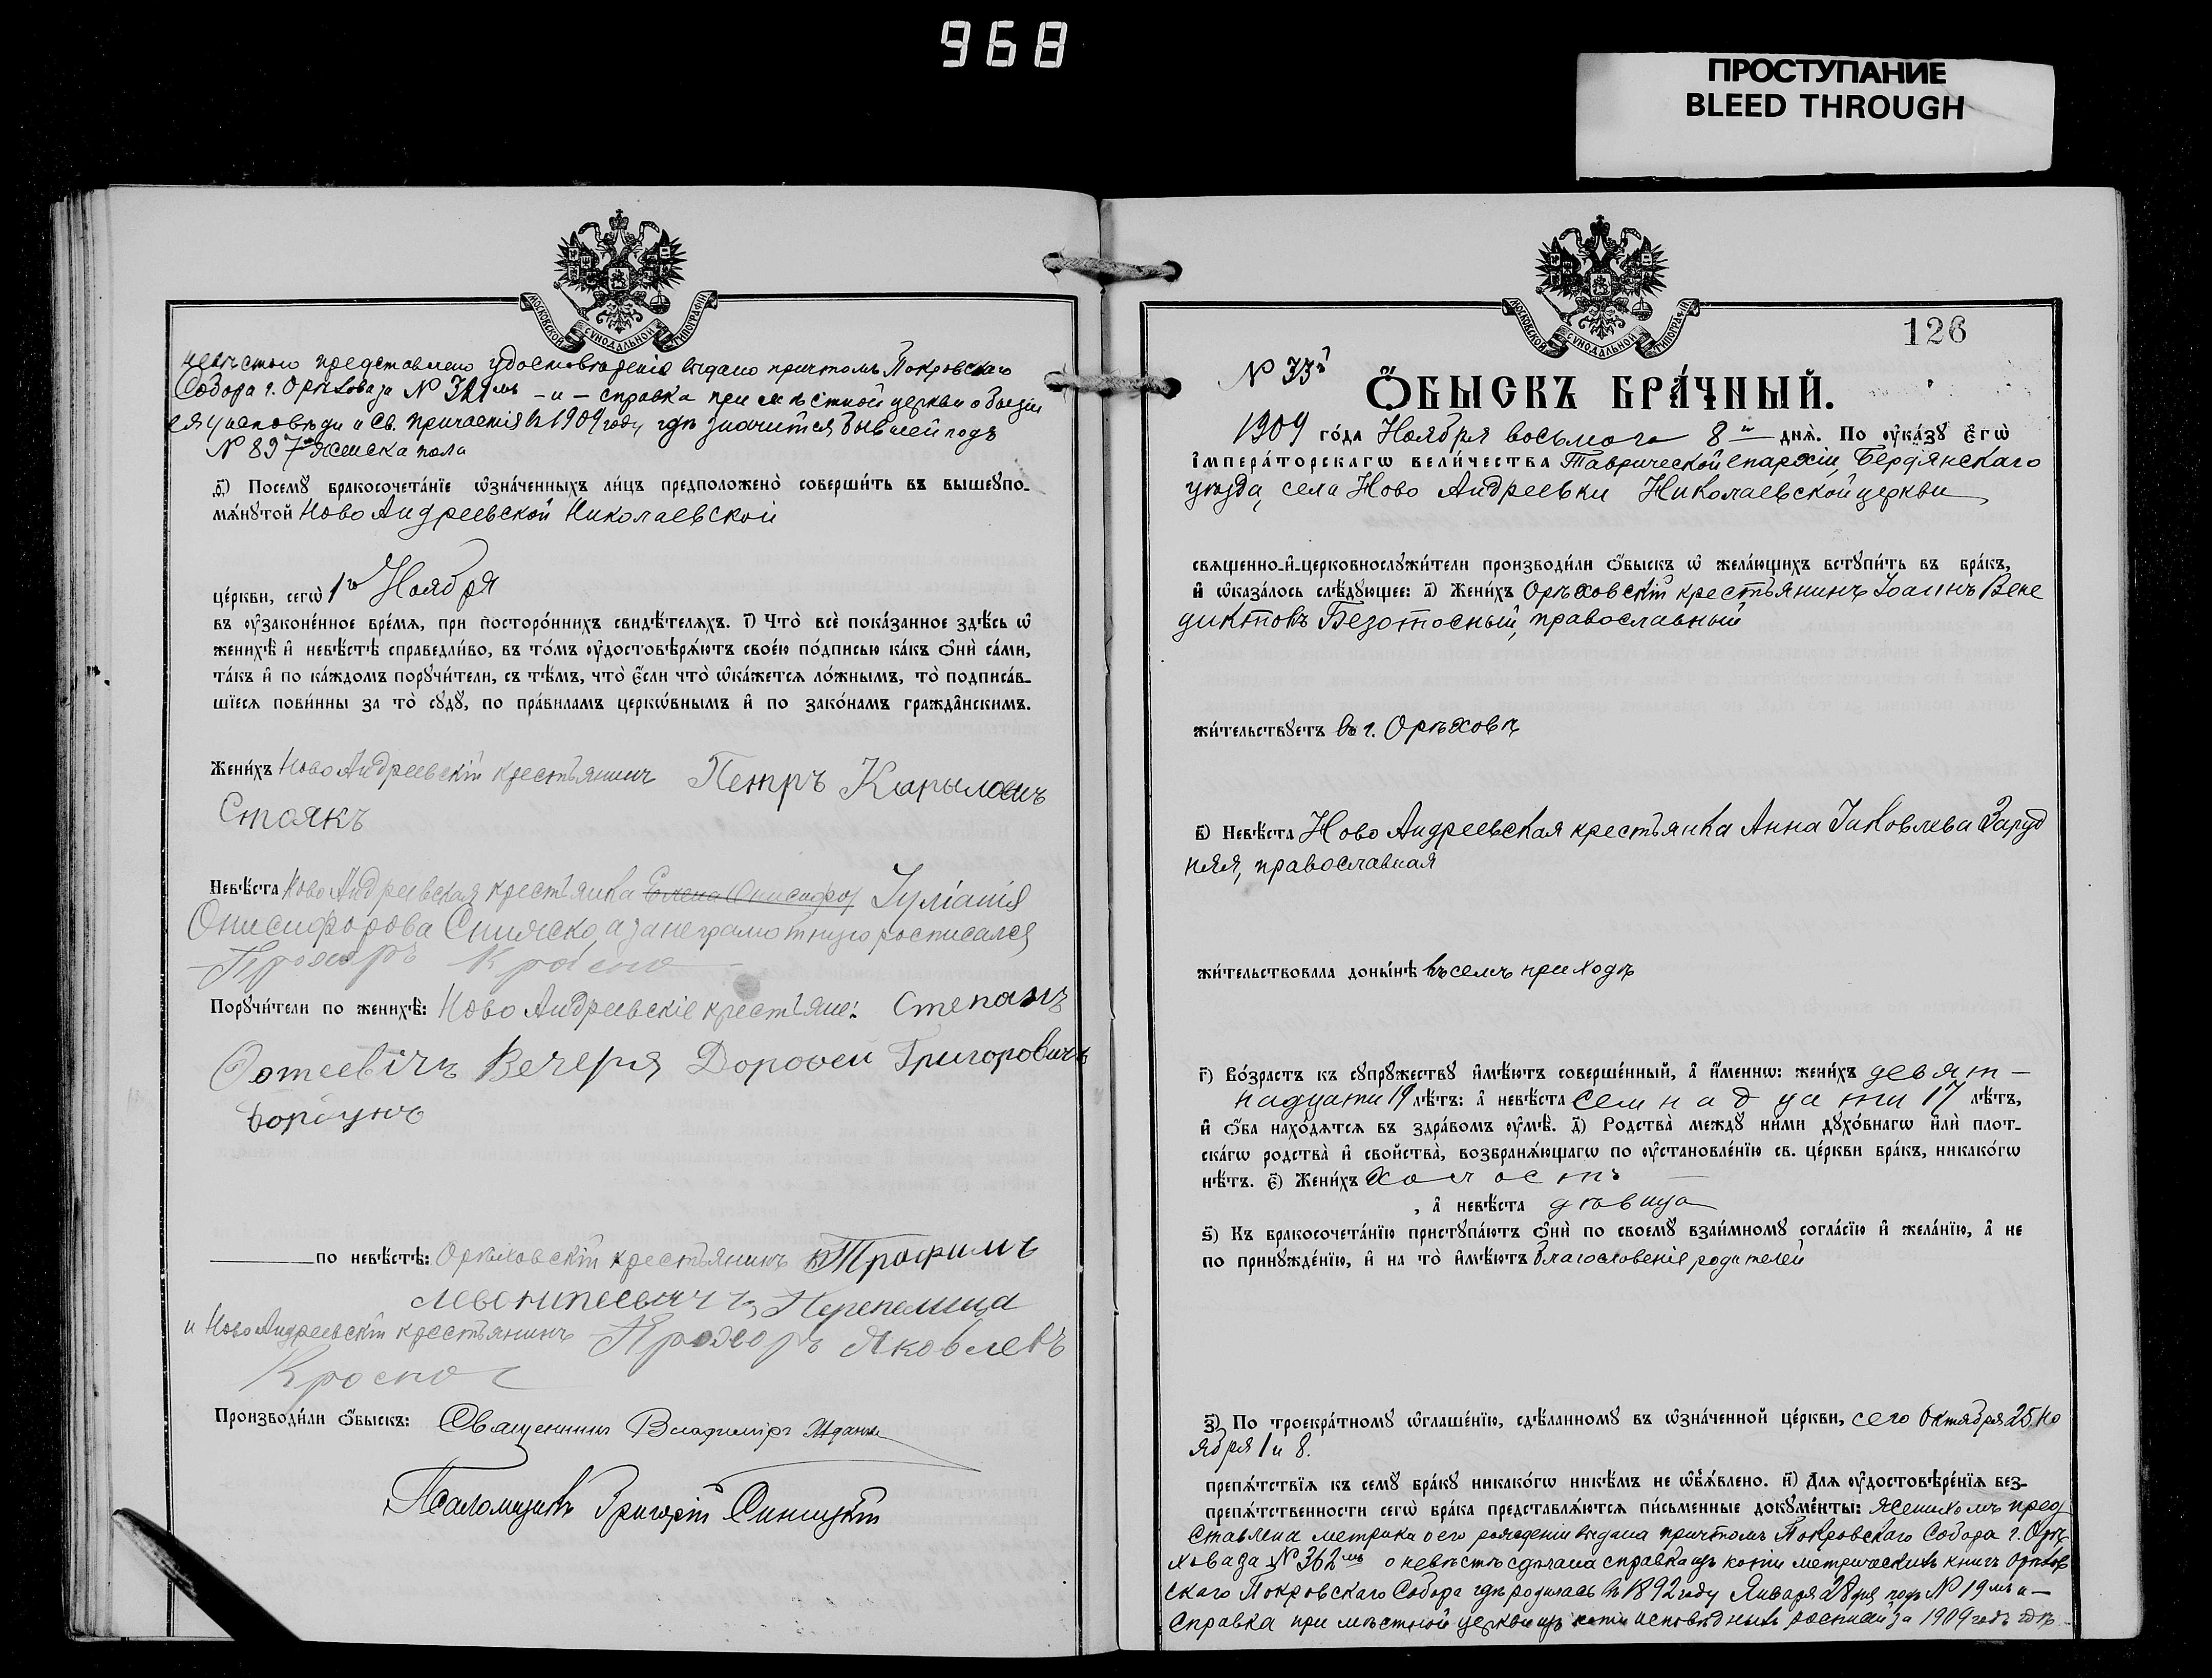 968
ПРОСТУПАНИЕ
BLEED THROUGH
МОСКОВСКОЙ СѴНОДАЛЬНОЙ ТИПОГРАФІИ
невѣстою представлено удостовѣреніе выдано причтомъ Покровскаго
Собора г. Орѣхова за № 321мъ – и – справка при мѣстной церкви о бытіи
ея у исповѣди и Св. причастія въ 1909 году гдѣ значится бывшей подъ
№ 897 женска пола
Посемꙋ бракосочета́нїе ѡ҆зна́ченныхъ ли́цъ предположено̀ соверши́ть въ вышеꙋпо-
мѧ́нꙋтой Ново Андреевской Николаевской
це́ркви, сегѡ̀ 1го Ноября
въ ᲂу҆законе́нное вре́мѧ, при посторо́ннихъ свидѣ́телѧхъ. і҃) Что̀ всѐ пока́занное здѣ́сь ѡ҆
женихѣ̀ и҆ невѣ́стѣ справедли́во, въ то́мъ ᲂу҆достовѣрѧ́ютъ свое́ю по́дписью ка́къ ѻ҆нѝ са́ми,
та́къ и҆ по ка́ждомъ порꙋчи́тели, съ тѣ́мъ, что̀ є҆́сли что̀ ѡ҆ка́жетсѧ ло́жнымъ, то̀ подписа́в-
шїесѧ пови́нны за то̀ сꙋдꙋ̀, по пра́виламъ церкѡ́внымъ и҆ по зако́намъ гражда̂нскимъ.
Жени́хъ Ново Андреевскій крестьянинъ Петръ Карыловичъ
Стоякъ
Невѣ́ста Ново Андреевская крестьянка Елена Онисифор Іуліанія
Онисифорова, а за неграмотную росписался
Прохоръ Кросно
Порꙋчи́тели по женихѣ̀: Ново Андреевскіе крестьяне: Степанъ
Вечеря Дороѳей Григоровичъ
по невѣ́стѣ: Орѣховскій крестьянинъ Трофимъ
Перепелица
и Ново Андреевскій крестьянинъ Прохоръ Яковлевъ
Кросно
Производи́ли ѻ҆́быскъ: Священникъ Владиміръ
Псаломщикъ Григорій Синицкій
МОСКОВСКОЙ СѴНОДАЛЬНОЙ ТИПОГРАФІИ
126
№ 33й
Ѻ҆́БЫСКЪ БРА́ЧНЫЙ.
1909 го́да Ноября восьмого 8й днѧ̀. По ᲂу҆ка́зꙋ є҆гѡ̀
і҆мпера́торскагѡ вели́чества Таврической епархіи, Бердянскаго
уѣзда, села Ново Андреевки Николаевской церкви
свѧщенно-и҆-церковнослꙋжи́тели производи́ли ѻ҆́быскъ ѡ҆ жела́ющихъ встꙋпи́ть въ бра́къ,
и҆ ѡ҆каза́лось слѣ́дꙋющее: а҃) Жени́хъ Орѣховскій крестьянинъ Іоаннъ Вене
диктовъ Безотосный, православный
жи́тельствꙋетъ въ г. Орѣховѣ
в҃) Невѣ́ста Ново Андреевская крестьянка Анна Іаковлева Заруд
няя, православная
жи́тельствовала доны́нѣ въ семъ приходѣ
г҃) Во́зрастъ къ сꙋпрꙋ́жествꙋ и҆мѣ́ютъ соверше́нный, а҆ и҆́меннѡ: жени́хъ девят-
надцати 19 лѣ́тъ: а҆ невѣ́ста семнадцати 17 лѣ́тъ,
и҆ ѻ҆́ба нахо́дѧтсѧ въ здра́вомъ ᲂу҆мѣ̀. д҃) Родства̀ междꙋ̀ ни́ми дꙋхо́внагѡ и҆лѝ плот-
ска́гѡ родства̀ и҆ свойства̀, возбранѧ́ющагѡ по ᲂу҆становле́нїю св. це́ркви бра́къ, никако́гѡ
нѣ́тъ. є҃) Жени́хъ Холостъ
, а҆ невѣ́ста дѣвица
ѕ҃) Къ бракосочета́нїю пристꙋпа́ютъ ѻ҆нѝ по своемꙋ̀ взаи́мномꙋ согла́сїю и҆ жела́нїю, а҆ не
по принꙋжде́нїю, и҆ на то̀ и҆мѣ́ютъ благословенія родителей
з҃) По троекра́тномꙋ ѡ҆глаше́нїю, сдѣ́ланномꙋ въ ѡ҆зна́ченной це́ркви, сего Октября 25, Но
ября 1 и 8.
препѧ́тствїѧ къ семꙋ̀ бра́кꙋ никако́гѡ никѣ́мъ не ѡ҆б̾ѧ́влено. и҃) Длѧ ᲂу҆достовѣре́нїѧ без-
препѧ́тственности сегѡ̀ бра́ка представлѧ́ютсѧ пи́сьменные докꙋме́нты: женихомъ пред
ставлена метрика о его рожденіи выдана причтомъ Покровскаго Собора г. Орѣ-
хова за № 362мъ о невѣстѣ сдѣлана справка изъ копіи метрическихъ книгъ Орѣхов
скаго Покровскаго Собора гдѣ родилась въ 1892 году Января 28 дня подъ № 19мъ и –
Справка при мѣстной церкви изъ копіи исповѣдныхъ росписей за 1909 годъ гдѣ